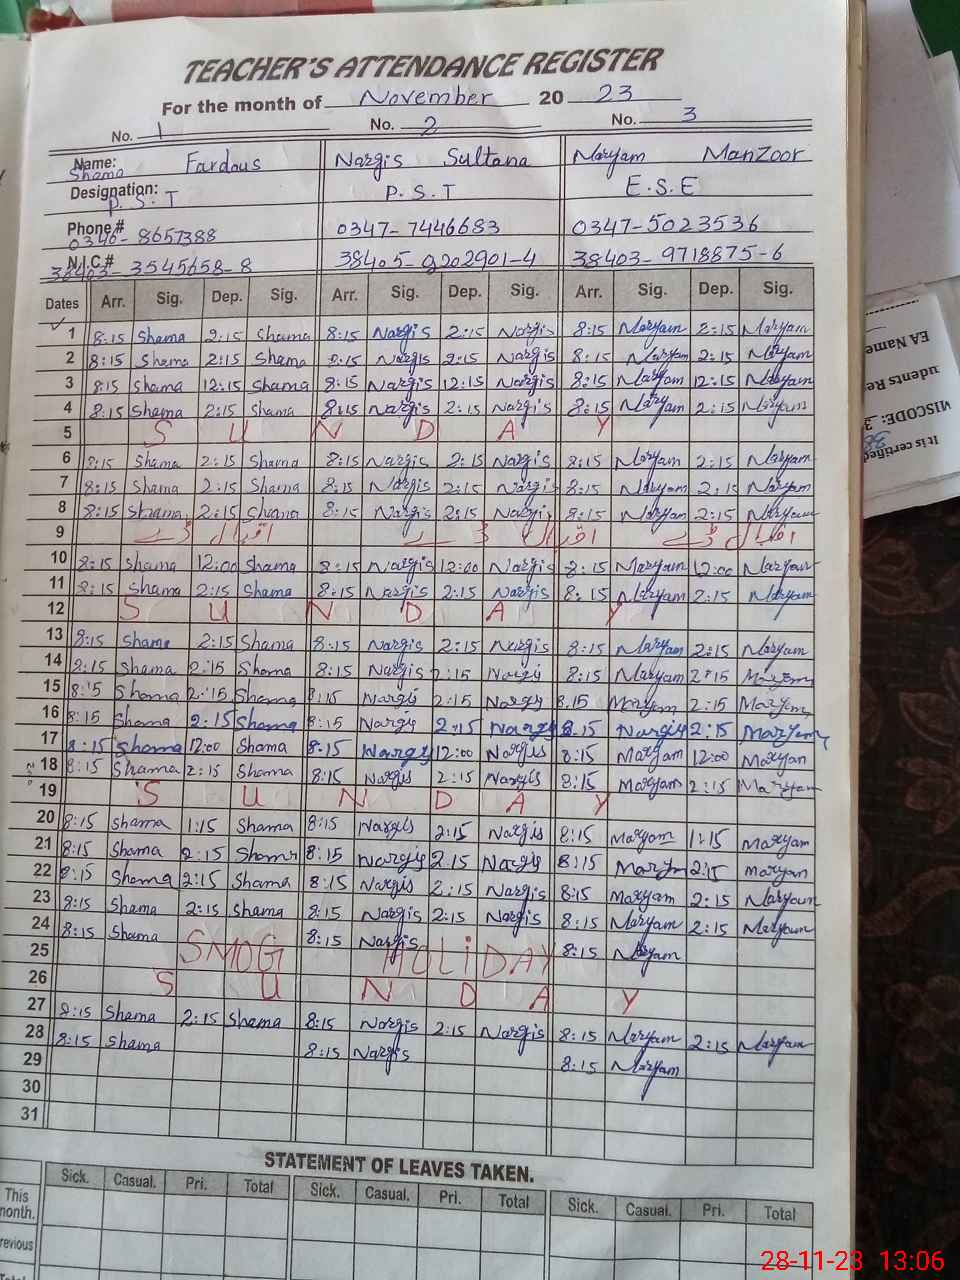 TEACHER'S ATTENDANCE REGISTER
For the month of November 20 23
No. 1 No. 2 No. 3
Name: Shama Fardous Nargis Sultana Maryam Manzoor
Designation: P.S.T P.S.T E.S.E
Phone # 0346-8657388 0347-7446683 0347-5023536
N.I.C.# 38403-3545658-8 38405-0202901-4 38403-9718875-6
Dates Arr. Sig. Dep. Sig. Arr. Sig. Dep. Sig. Arr. Sig. Dep. Sig.
1 8:15 Shama 2:15 Shama 8:15 Nargis 2:15 Nargis 8:15 Maryam 2:15 Maryam
2 8:15 Shama 2:15 Shama 8:15 Nargis 2:15 Nargis 8:15 Maryam 2:15 Maryam
3 8:15 Shama 12:15 Shama 8:15 Nargis 12:15 Nargis 8:15 Maryam 12:15 Maryam
4 8:15 Shama 2:15 Shama 8:15 Nargis 2:15 Nargis 8:15 Maryam 2:15 Maryam
5 S U N D A Y
6 8:15 Shama 2:15 Shama 8:15 Nargis 2:15 Nargis 8:15 Maryam 2:15 Maryam
7 8:15 Shama 2:15 Shama 8:15 Nargis 2:15 Nargis 8:15 Maryam 2:15 Maryam
8 8:15 Shama 2:15 Shama 8:15 Nargis 2:15 Nargis 8:15 Maryam 2:15 Maryam
9 اقبال ڈے اقبال ڈے اقبال ڈے
10 8:15 Shama 12:00 Shama 8:15 Nargis 12:00 Nargis 8:15 Maryam 12:00 Maryam
11 8:15 Shama 2:15 Shama 8:15 Nargis 2:15 Nargis 8:15 Maryam 2:15 Maryam
12 S U N D A Y
13 8:15 Shama 2:15 Shama 8:15 Nargis 2:15 Nargis 8:15 Maryam 2:15 Maryam
14 8:15 Shama 2:15 Shama 8:15 Nargis 2:15 Nargis 8:15 Maryam 2:15 Maryam
15 8:15 Shama 2:15 Shama 8:15 Nargis 2:15 Nargis 8:15 Maryam 2:15 Maryam
16 8:15 Shama 2:15 Shama 8:15 Nargis 2:15 Nargis 8:15 Nargis 2:15 Maryam
17 8:15 Shama 12:00 Shama 8:15 Nargis 12:00 Nargis 8:15 Maryam 12:00 Maryam
18 8:15 Shama 2:15 Shama 8:15 Nargis 2:15 Nargis 8:15 Maryam 2:15 Maryam
19 S U N D A Y
20 8:15 Shama 1:15 Shama 8:15 Nargis 2:15 Nargis 8:15 Maryam 1:15 Maryam
21 8:15 Shama 2:15 Shama 8:15 Nargis 2:15 Nargis 8:15 Maryam 2:15 Maryam
22 8:15 Shama 2:15 Shama 8:15 Nargis 2:15 Nargis 8:15 Maryam 2:15 Maryam
23 8:15 Shama 2:15 Shama 8:15 Nargis 2:15 Nargis 8:15 Maryam 2:15 Maryam
24 8:15 Shama 8:15 Nargis 8:15 Maryam
25 SMOG HOLIDAY
26 S U N D A Y
27 8:15 Shama 2:15 Shama 8:15 Nargis 2:15 Nargis 8:15 Maryam 2:15 Maryam
28 8:15 Shama 8:15 Nargis 8:15 Maryam
29
30
31
STATEMENT OF LEAVES TAKEN.
Sick. Casual. Pri. Total Sick. Casual. Pri. Total Sick. Casual. Pri. Total
This
month.
EA Name
udents Re
MISCODE:
It is certified
28-11-23 13:06